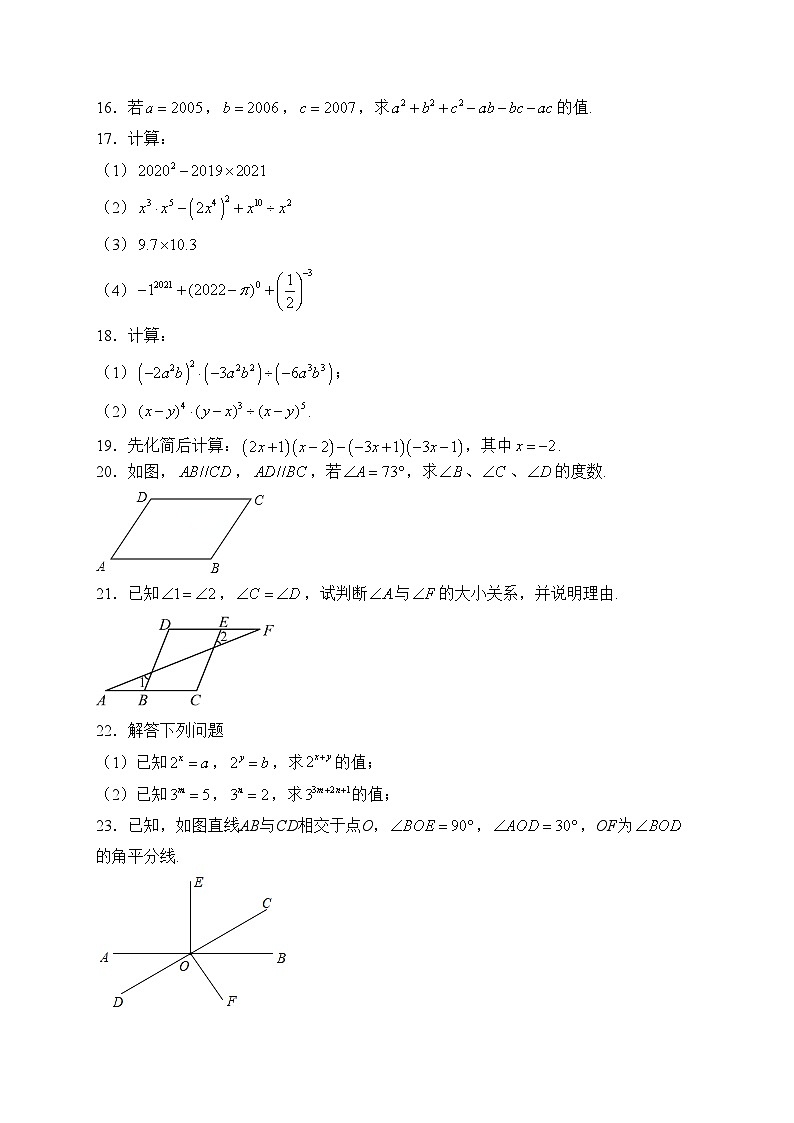 16．若a = 2005，b = 2006，c = 2007，求a² + b² + c² − ab − bc − ac 的值.
17．计算：
（1）2020² − 2019×2021
（2）x³ · x⁵ − (2x⁴)² + x¹⁰ ÷ x²
（3）9.7×10.3
（4）−1²⁰²¹ + (2022 − π)⁰ + (1/2)⁻³
18．计算：
（1）(−2a²b)² · (−3a²b²) ÷ (−6a³b³)；
（2）(x − y)⁴ · (y − x)³ ÷ (x − y)⁵．
19．先化简后计算：(2x+1)(x−2)−(−3x+1)(−3x−1)，其中 x = −2．
20．如图，AB//CD，AD//BC，若∠A = 73°，求∠B、∠C、∠D的度数.
D
C
A
B
21．已知∠1=∠2，∠C=∠D，试判断∠A与∠F的大小关系，并说明理由.
D
E
F
2
1
A
B
C
22．解答下列问题
（1）已知2ˣ = a，2ʸ = b，求2ˣ⁺ʸ的值；
（2）已知3ᵐ = 5，3ⁿ = 2，求3³ᵐ⁺²ⁿ⁺¹的值；
23．已知，如图直线AB与CD相交于点O，∠BOE = 90°，∠AOD = 30°，OF为∠BOD
的角平分线.
E
C
A
O
B
D
F